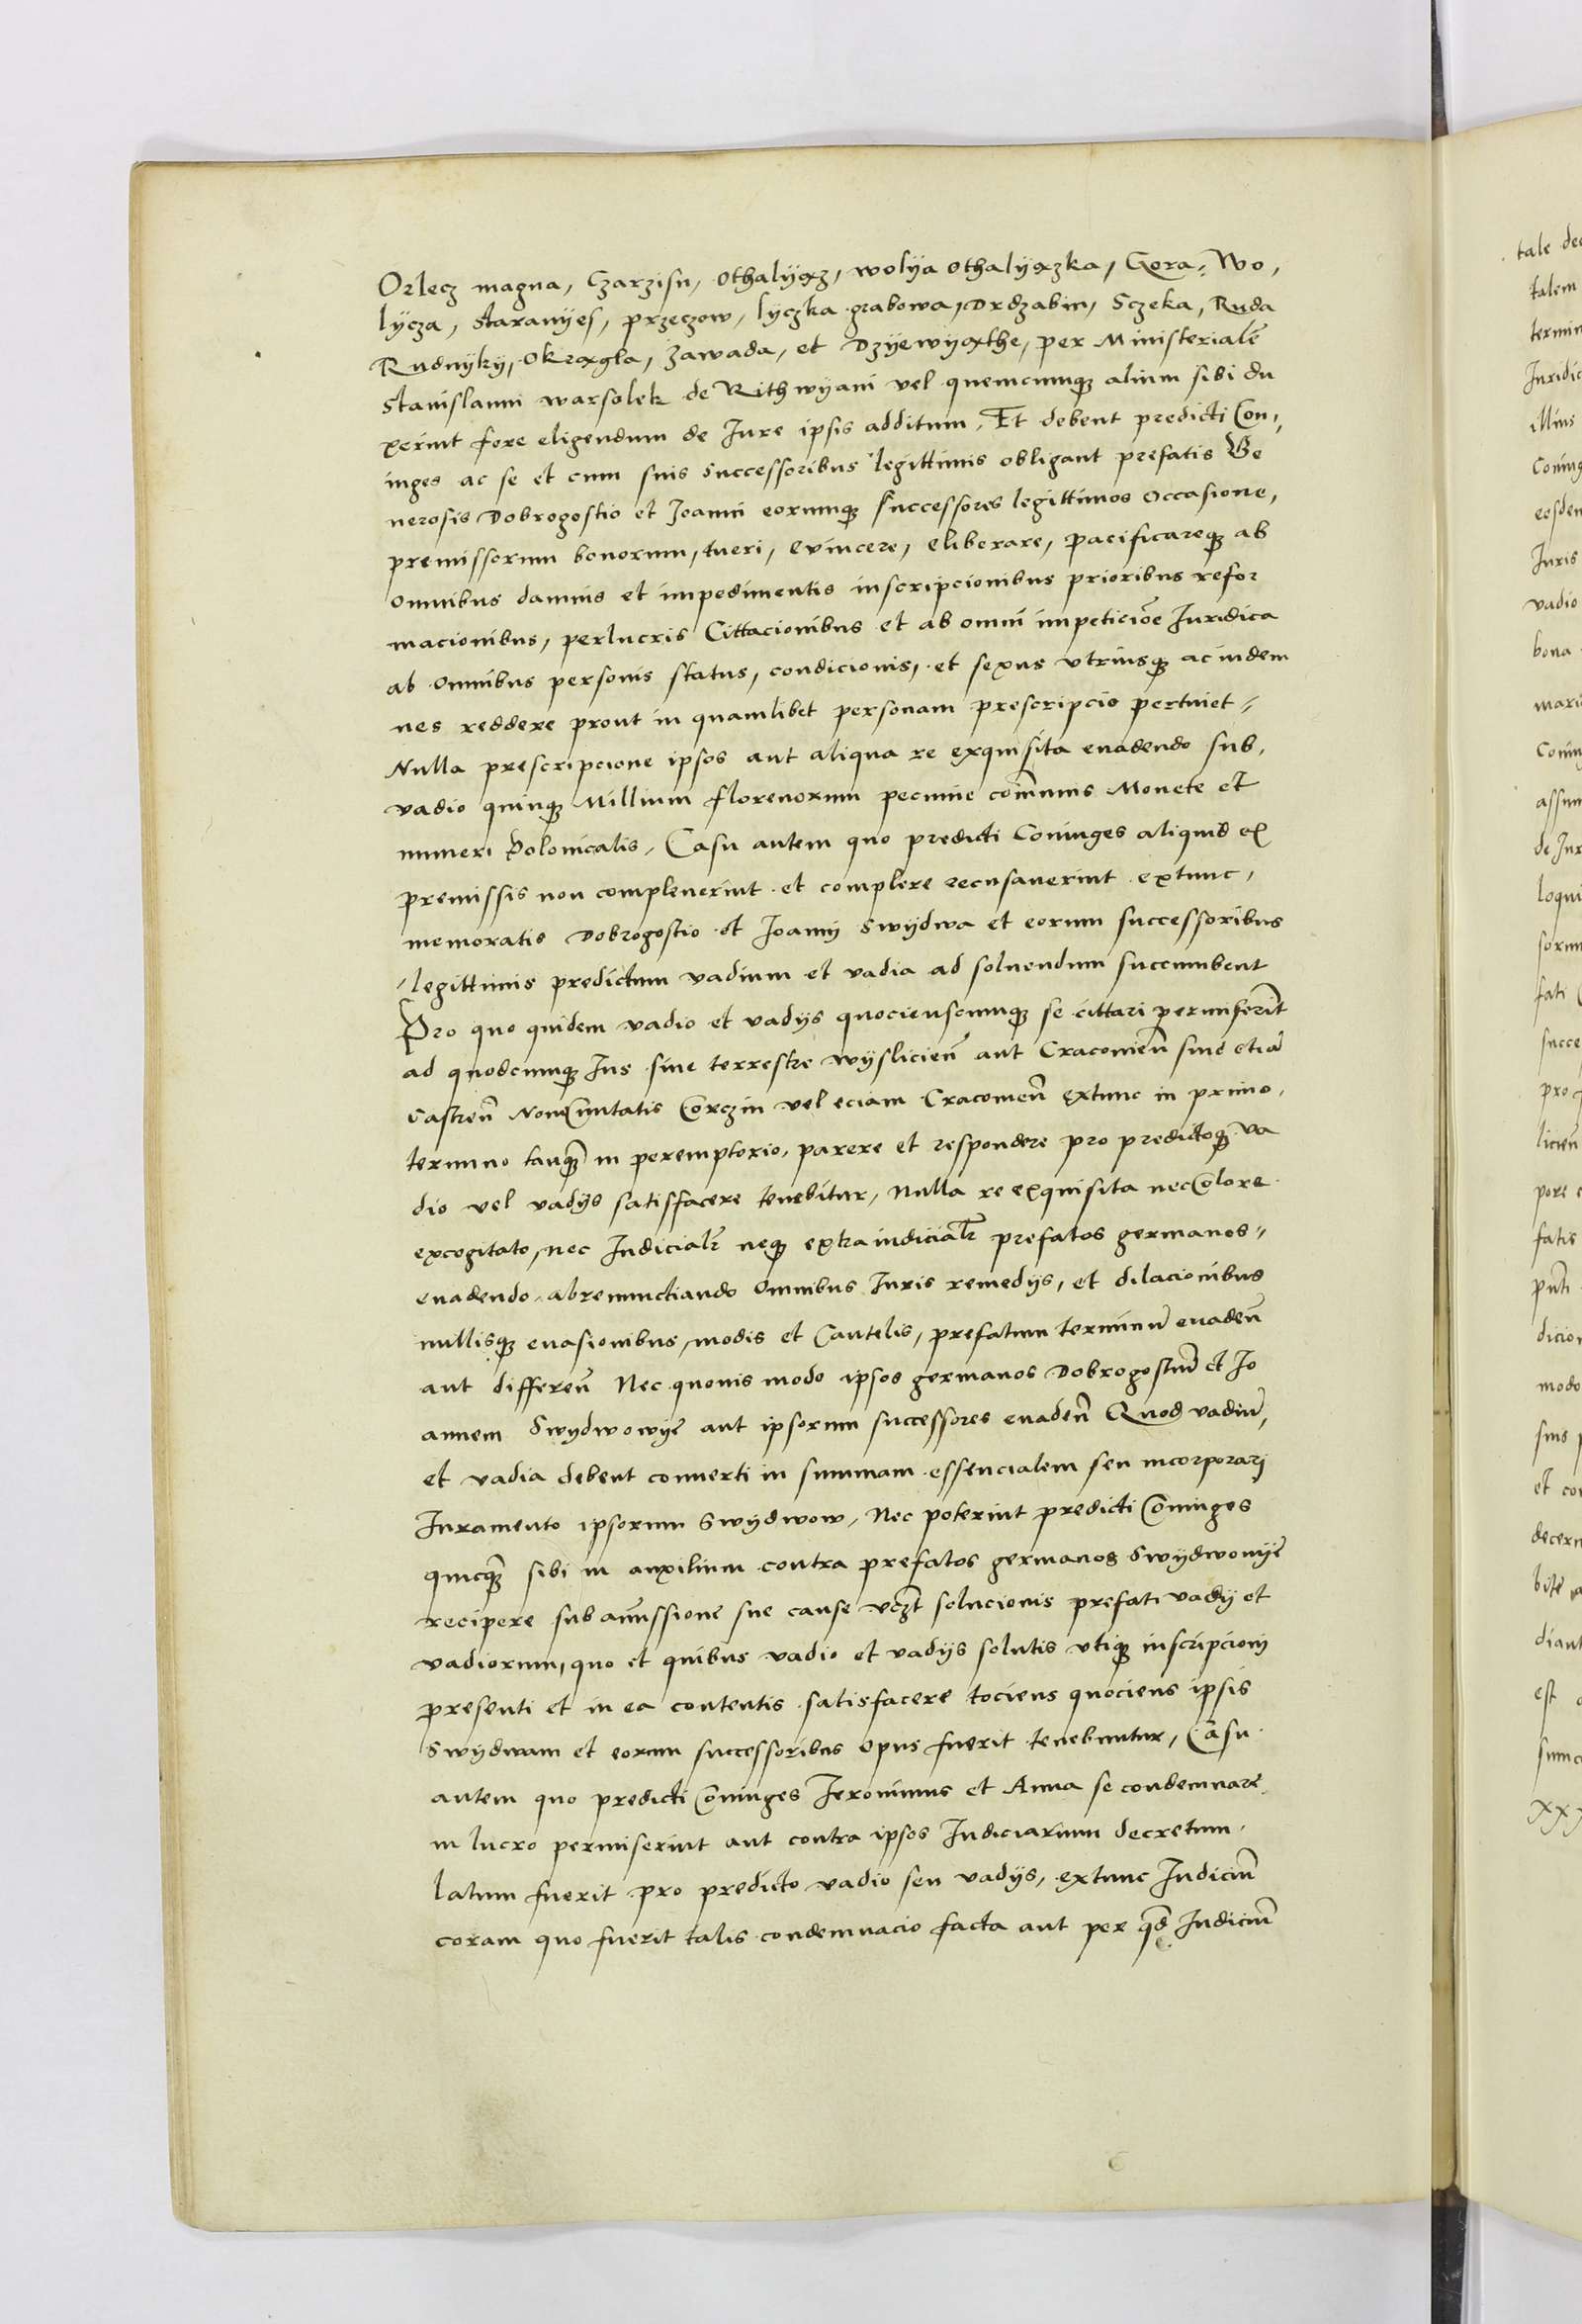 Orlecz magna, Czarzisn, Othalyąz, wolya Othalyązka, Gora, Wo,
lycza, Staranyes, przeczow, lyczka grabowa, Drdzabin, Sczeka, Ruda
Rudnyky, Okrągla, Zawada, et Dzyewyąthe, per Ministerialē
Stanislaum warsolek de Rithwyani vel quemcumqꝫ alium sibi du
xerint fore eligendum de Iure ipsis additum, Et debent predicti Con,
iuges ac se et cum suis successoribus legittimis obligant prefatis Ge
nerosis Dobrogostio et Joanni eorumqꝫ successores legittimos Occasione,
premissorum bonorum, tueri, evincere, eliberare, pacificareqꝫ ab
omnibus damnis et impedimentis inscripcionibus prioribus refor
macionibus, perlucris Cittacionibus et ab omni impeticiōe Iuridica
ab omnibus personis status, condicionis, et sexus vtriusqꝫ ac indem
nes reddere prout in quamlibet personam prescripcio pertinet
Nulla prescripcione ipsos aut aliqua re exquisita euadendo sub,
vadio quinqꝫ Millium florenorum pecunie com̄unis Monete et
numeri Polonicalis, Casu autem quo predicti Coniuges aliquid ex
premissis non compleuerint et complere recusauerint extunc,
memoratis Dobrogostio et Joanni Swydwa et eorum successoribus
legittimis predictum vadium et vadia ad soluendum succumbent
Pro quo quidem vadio et vadijs quocienscumqꝫ se cittari permiserīt
ad quodcumqꝫ Ius siue terrestre wyslicieñ aut Cracouieñ siue etiā
Castreñ Nouaciuitatis Corczin vel eciam Cracouieñ extunc in primo,
termino tanqꝫ in peremptorio, parere et respondere pro predictoqꝫ va
dio vel vadijs satisfacere tenebitur, Nulla re exquisita nec Colore
excogitato, nec Iudicialr neqꝫ extraiudicialr prefatos germanos
euadendo, abrenunctiando Omnibus Iuris remedijs, et dilacionibus
nullisqꝫ euasionibus, modis et Cautelis, prefatum terminū euadeñ
aut differeñ Nec quouis modo ipsos germanos Dobrogostiū et Jo
annem Swydwowye aut ipsorum successores euadeñ Quod vadiū,
et vadia debent conuerti in summam essencialem seu incorporarj
Iuramento ipsorum Swydwow, Nec poterint predicti Coniuges
quicqꝫ sibi in auxilium contra prefatos germanos Swydwowye
recipere sub amissione sue cause vczt solucionis prefati vadij et
vadiorum, quo et quibus vadio et vadijs solutis vtiqꝫ inscripcionj
presenti et in ea contentis satisfacere tociens quociens ipsis
Swydwam et eorum successoribus opus fuerit tenebuntur, Casu
autem quo predicti Coniuges Ieronimus et Anna se condemnare
in lucro permiserint aut contra ipsos Iudiciarium decretum
latum fuerit pro predicto vadio seu vadijs, extunc Iudiciū
coram quo fuerit talis condemnacio facta aut per qd̄ Iudiciū